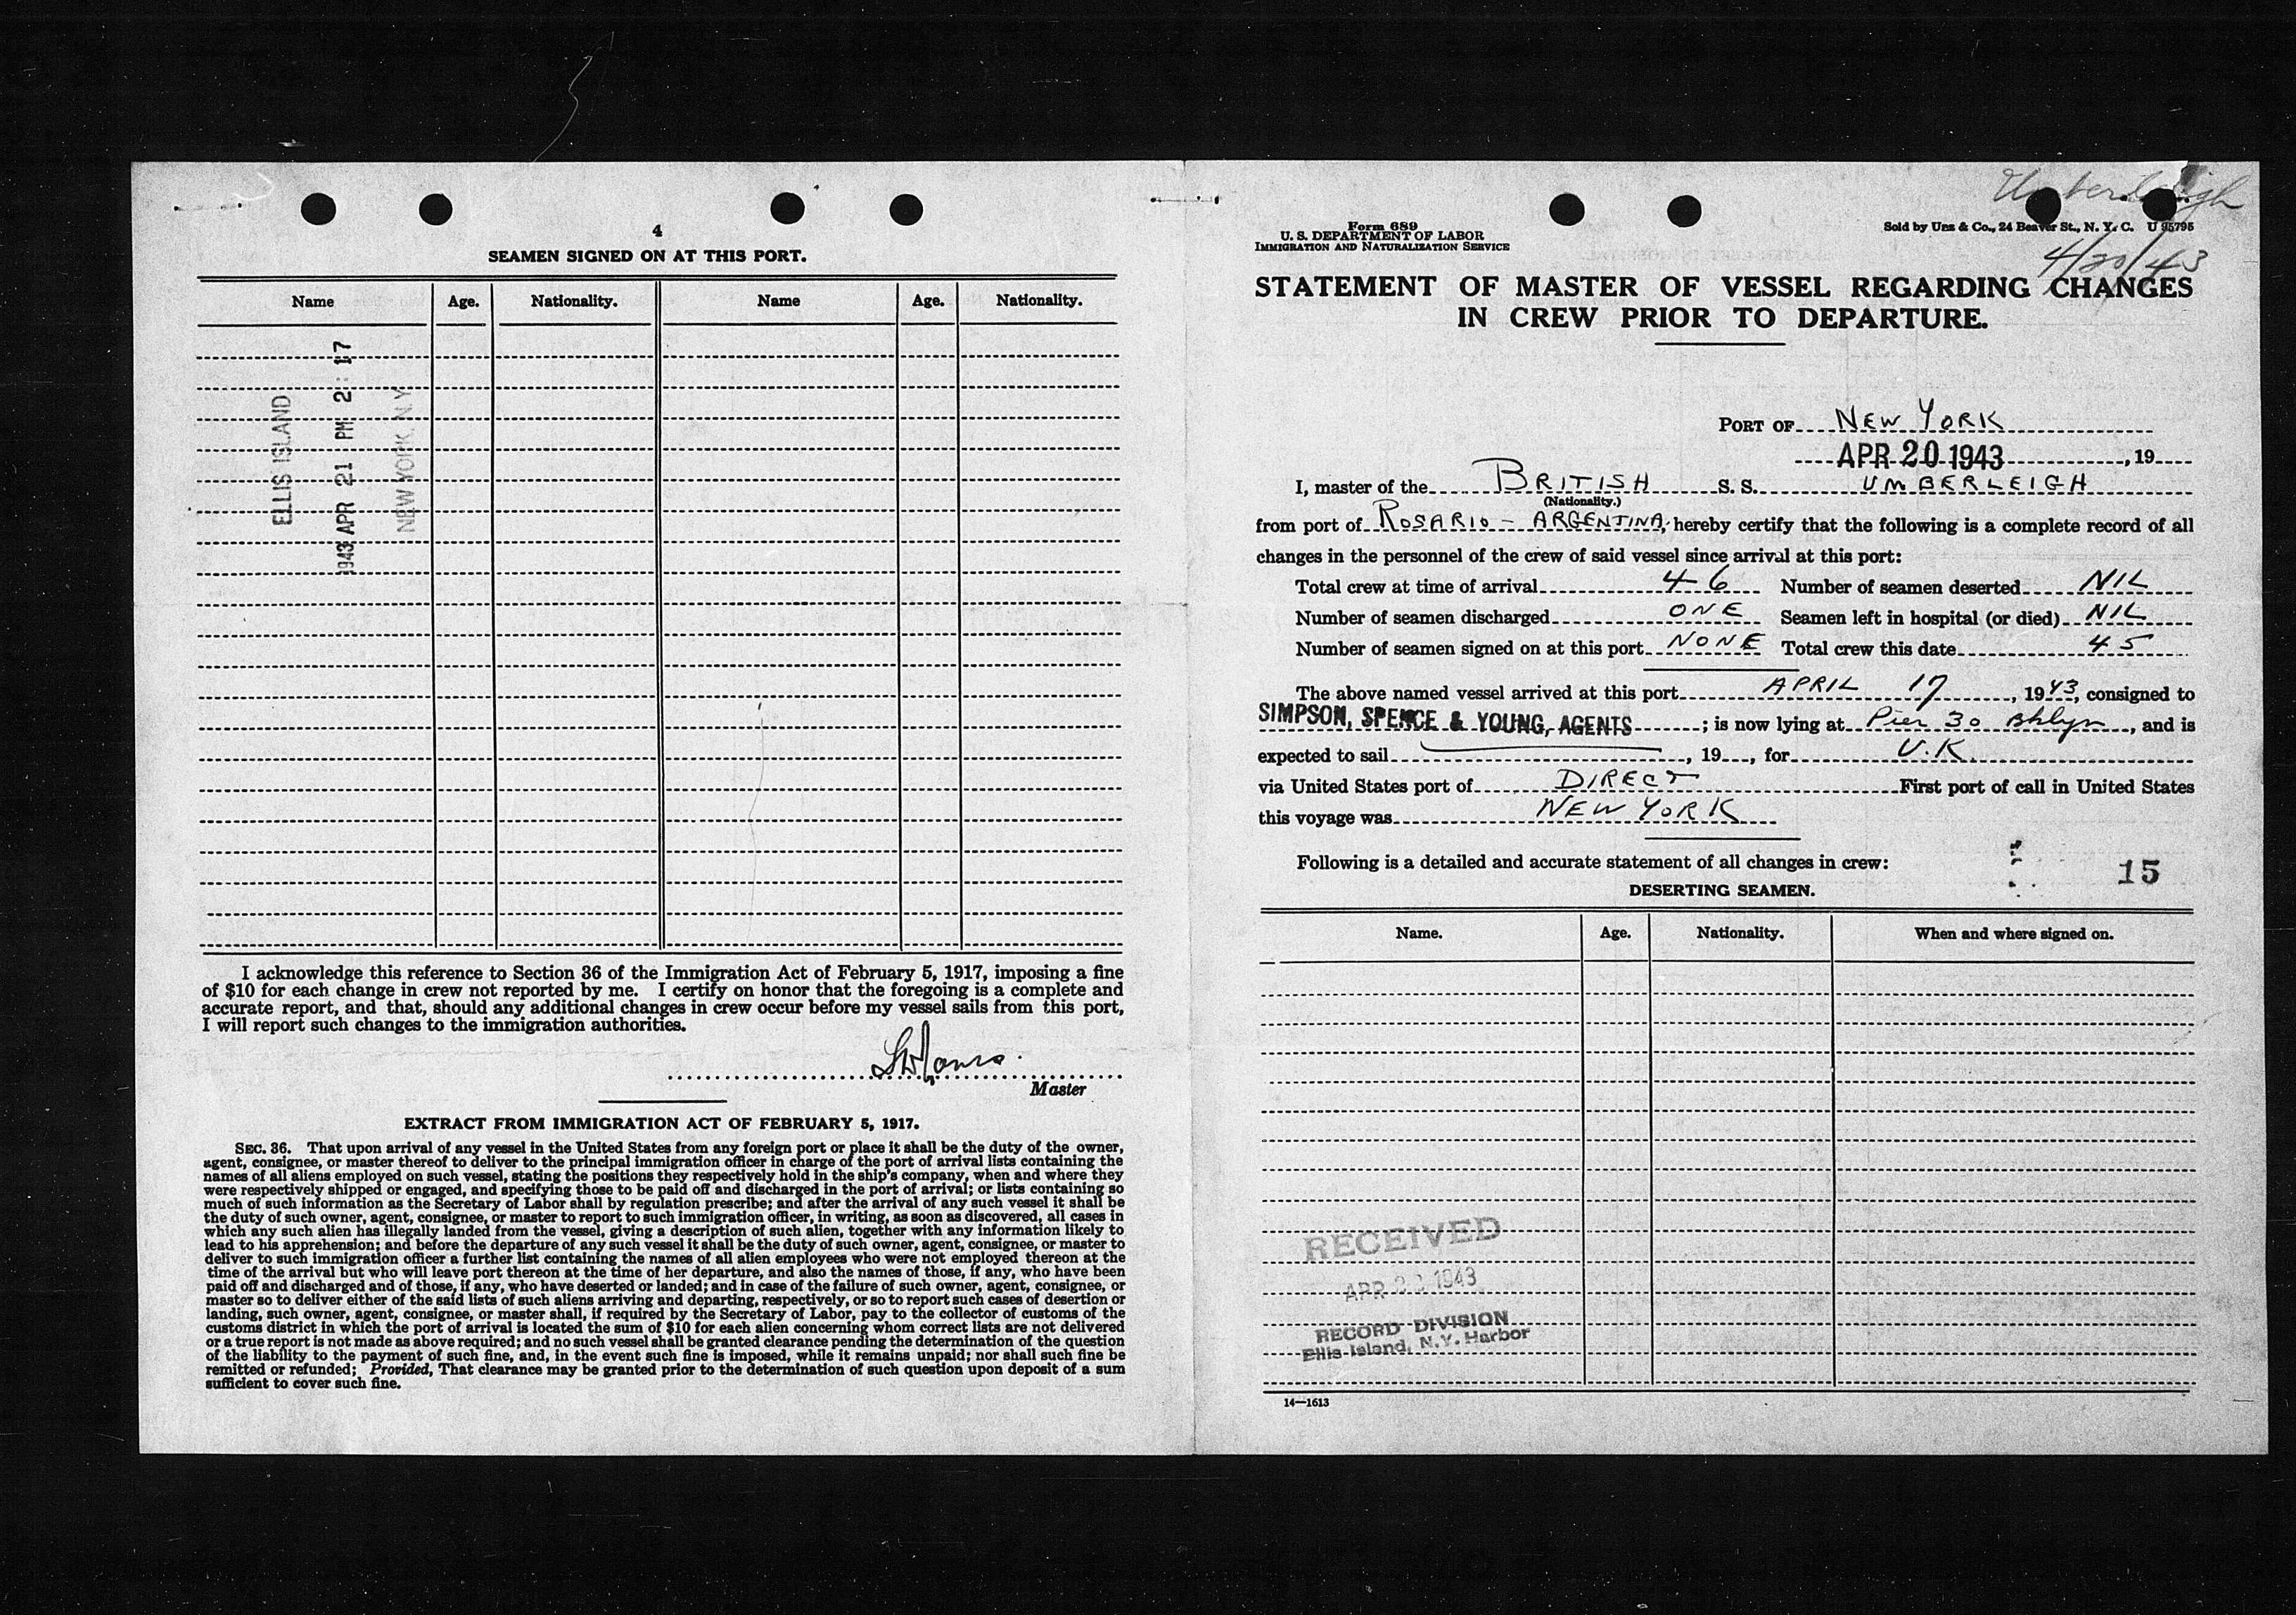 4
SEAMEN SIGNED ON AT THIS PORT.
Name Age. Nationality. Name Age. Nationality.
ELLIS ISLAND
1943 APR 21 PM 2: 17
NEW YORK, N.Y
I acknowledge this reference to Section 36 of the Immigration Act of February 5, 1917, imposing a fine
of $10 for each change in crew not reported by me. I certify on honor that the foregoing is a complete and
accurate report, and that, should any additional changes in crew occur before my vessel sails from this port,
I will report such changes to the immigration authorities.
Master
EXTRACT FROM IMMIGRATION ACT OF FEBRUARY 5, 1917.
SEC. 36. That upon arrival of any vessel in the United States from any foreign port or place it shall be the duty of the owner,
agent, consignee, or master thereof to deliver to the principal immigration officer in charge of the port of arrival lists containing the
names of all aliens employed on such vessel, stating the positions they respectively hold in the ship's company, when and where they
were respectively shipped or engaged, and specifying those to be paid off and discharged in the port of arrival; or lists containing so
much of such information as the Secretary of Labor shall by regulation prescribe; and after the arrival of any such vessel it shall be
the duty of such owner, agent, consignee, or master to report to such immigration officer, in writing, as soon as discovered, all cases in
which any such alien has illegally landed from the vessel, giving a description of such alien, together with any information likely to
lead to his apprehension; and before the departure of any such vessel it shall be the duty of such owner, agent, consignee, or master to
deliver to such immigration officer a further list containing the names of all alien employees who were not employed thereon at the
time of the arrival but who will leave port thereon at the time of her departure, and also the names of those, if any, who have been
paid off and discharged and of those, if any, who have deserted or landed; and in case of the failure of such owner, agent, consignee, or
master so to deliver either of the said lists of such aliens arriving and departing, respectively, or so to report such cases of desertion or
landing, such owner, agent, consignee, or master shall, if required by the Secretary of Labor, pay to the collector of customs of the
customs district in which the port of arrival is located the sum of $10 for each alien concerning whom correct lists are not delivered
or a true report is not made as above required; and no such vessel shall be granted clearance pending the determination of the question
of the liability to the payment of such fine, and, in the event such fine is imposed, while it remains unpaid; nor shall such fine be
remitted or refunded; Provided, That clearance may be granted prior to the determination of such question upon deposit of a sum
sufficient to cover such fine.
Umberleigh
4/20/43
Form 689
U. S. DEPARTMENT OF LABOR
IMMIGRATION AND NATURALIZATION SERVICE
Sold by Unz & Co., 24 Beaver St., N. Y. C. U 95795
STATEMENT OF MASTER OF VESSEL REGARDING CHANGES
IN CREW PRIOR TO DEPARTURE.
PORT OF NEW YORK
APR 20 1943, 19
I, master of the BRITISH S. S. UMBERLEIGH
(Nationality.)
from port of ROSARIO - ARGENTINA, hereby certify that the following is a complete record of all
changes in the personnel of the crew of said vessel since arrival at this port:
Total crew at time of arrival 46 Number of seamen deserted NIL
Number of seamen discharged ONE Seamen left in hospital (or died) NIL
Number of seamen signed on at this port NONE Total crew this date 45
The above named vessel arrived at this port APRIL 17, 1943, consigned to
SIMPSON, SPENCE & YOUNG, AGENTS; is now lying at Pier 30 Bklyn, and is
expected to sail , 19 , for U.K.
via United States port of DIRECT First port of call in United States
this voyage was NEW YORK
Following is a detailed and accurate statement of all changes in crew:
15
DESERTING SEAMEN.
Name. Age. Nationality. When and where signed on.
RECEIVED
APR 22 1943
RECORD DIVISION
Ellis Island, N.Y. Harbor
14—1613